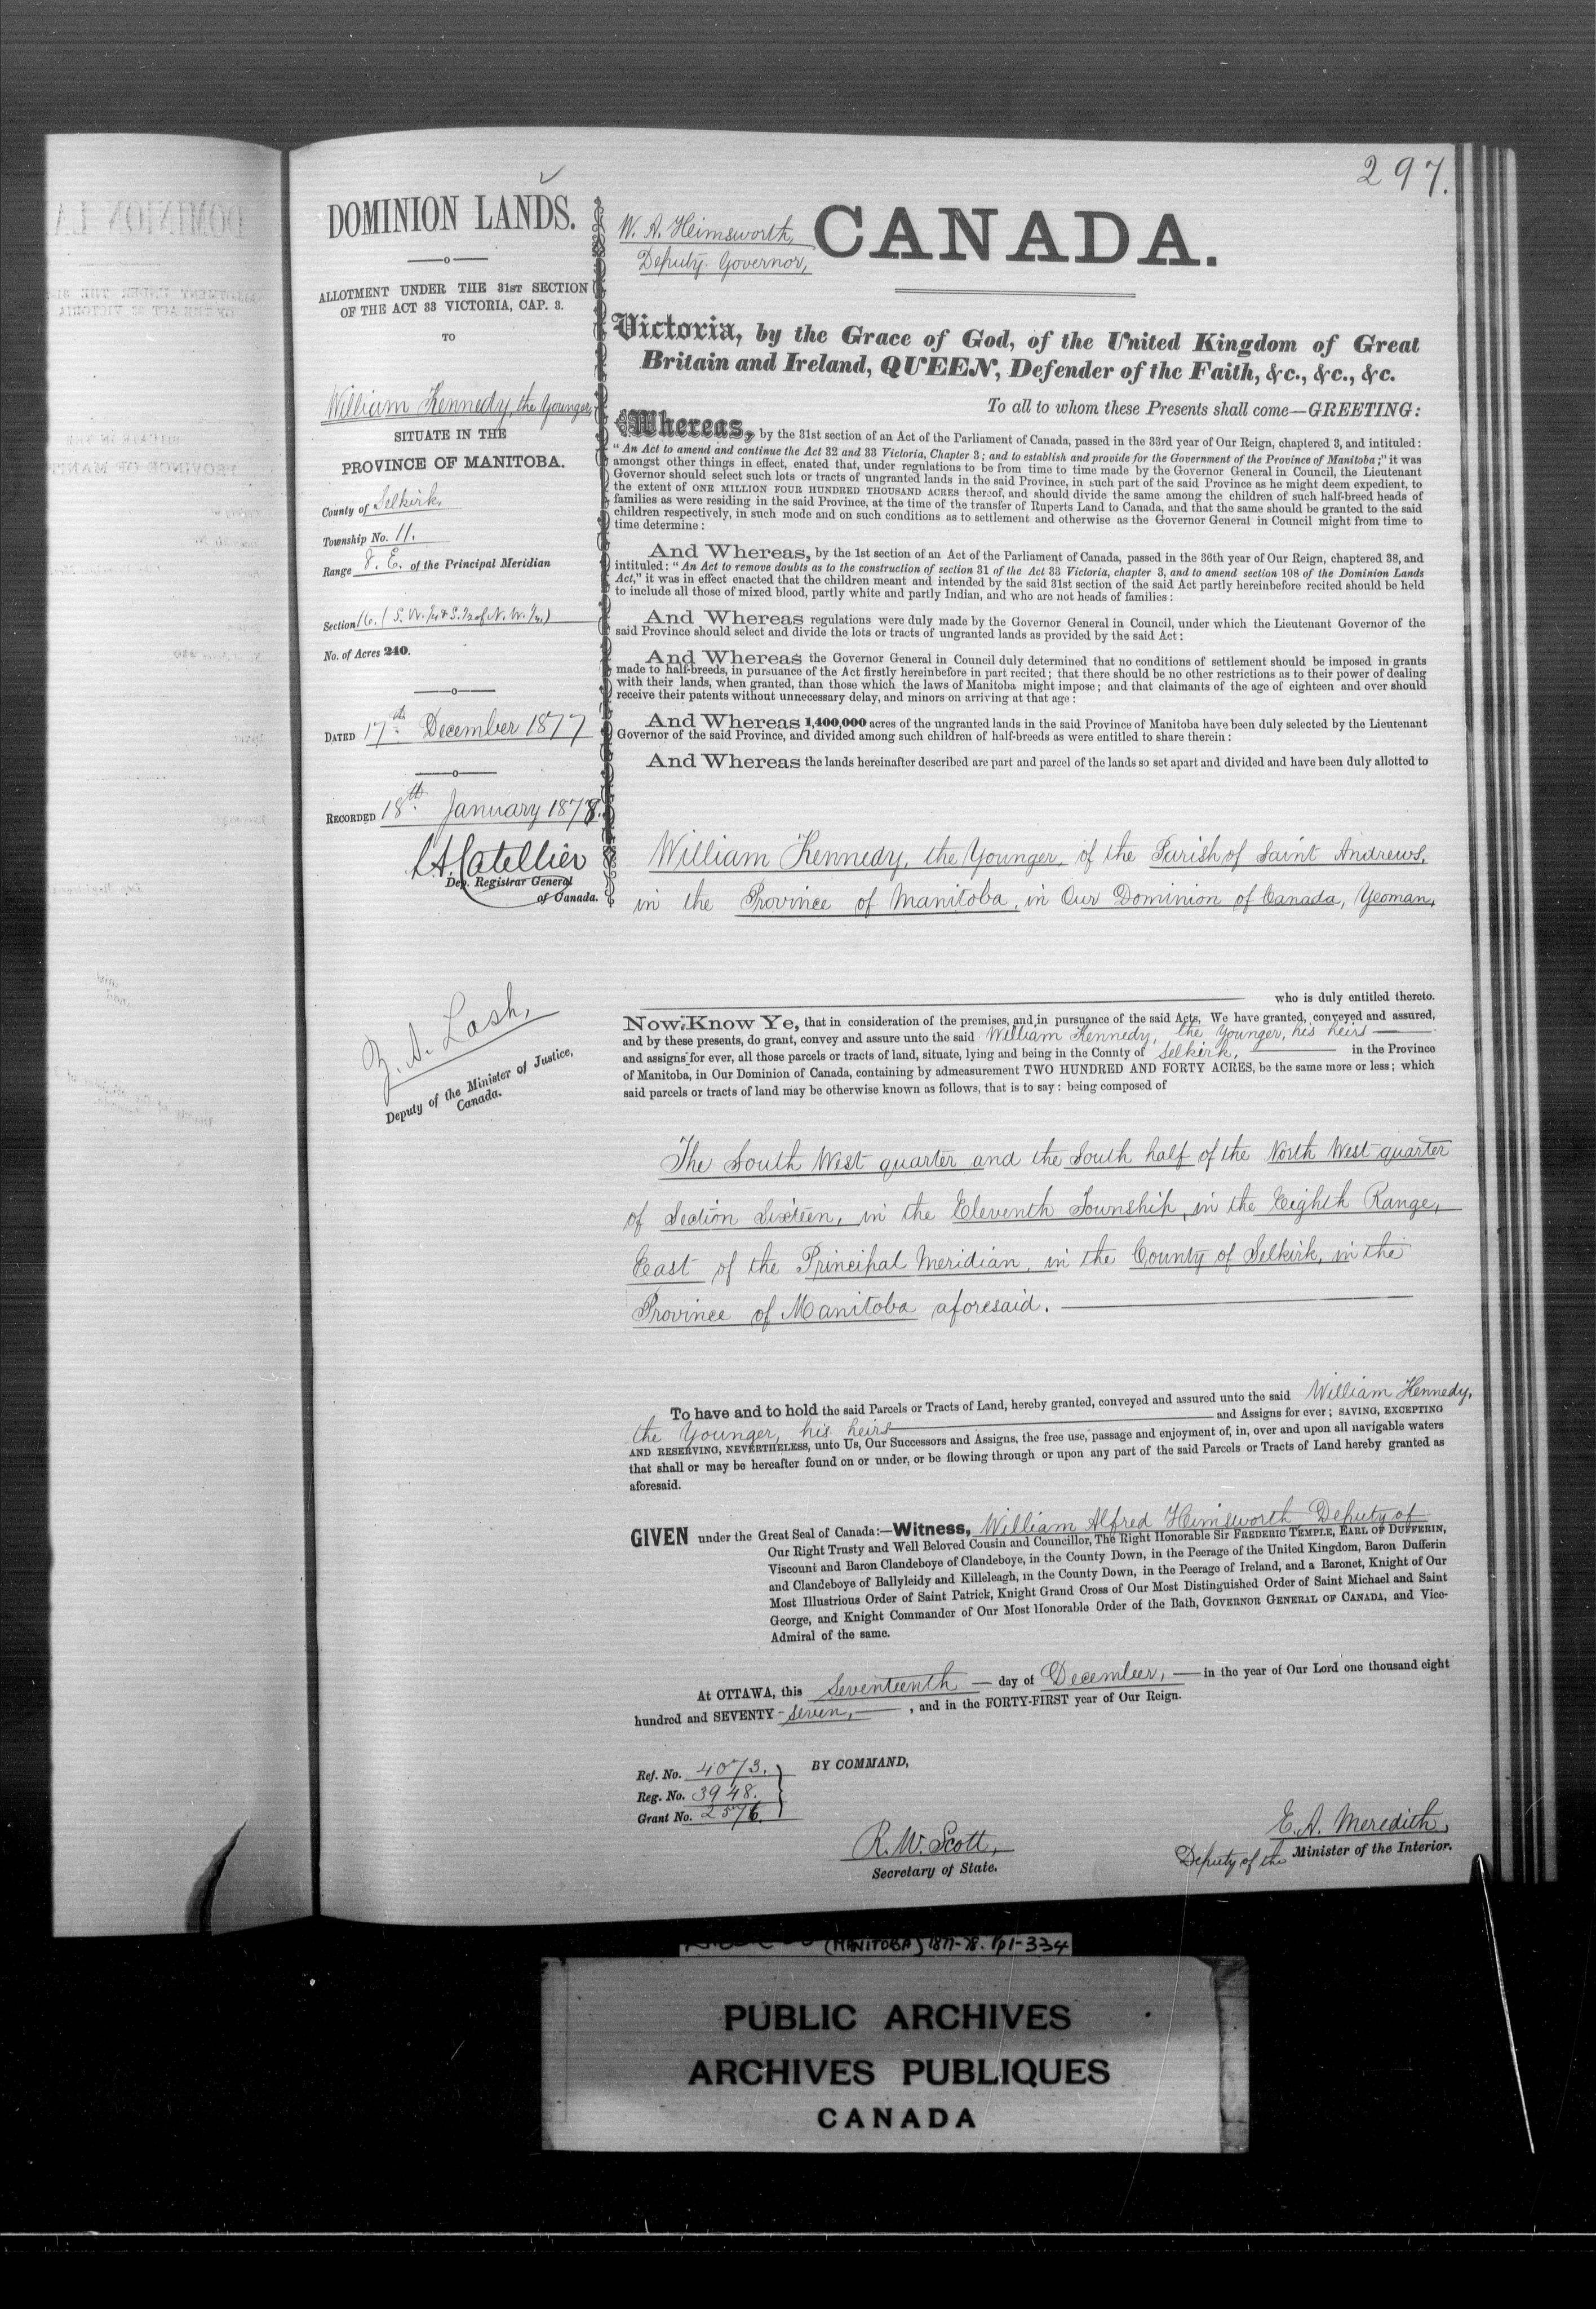 297.
DOMINION LANDS.
ALLOTMENT UNDER THE 31ST SECTION
OF THE ACT 33 VICTORIA, CAP. 3.
TO
William Kennedy, the Younger,
SITUATE IN THE
PROVINCE OF MANITOBA.
County of Selkirk,
Township No. 11.
Range 8. E. of the Principal Meridian
Section 16. (S. W. 1/4 & S. 1/2 of N. W. 1/4.)
No. of Acres 240.
DATED 17th. December 1877
RECORDED 18th. January 1878.
L. A. Catellier
Dep. Registrar General
of Canada.
Z. A. Lash,
Deputy of the Minister of Justice,
Canada.
W. A. Heimsworth,
Deputy Governor,
CANADA.
Victoria, by the Grace of God, of the United Kingdom of Great
Britain and Ireland, QUEEN, Defender of the Faith, &c., &c., &c.
To all to whom these Presents shall come—GREETING:
Whereas, by the 31st section of an Act of the Parliament of Canada, passed in the 33rd year of Our Reign, chaptered 3, and intituled:
"An Act to amend and continue the Act 32 and 33 Victoria, Chapter 3; and to establish and provide for the Government of the Province of Manitoba;" it was
amongst other things in effect, enated that, under regulations to be from time to time made by the Governor General in Council, the Lieutenant
Governor should select such lots or tracts of ungranted lands in the said Province, in such part of the said Province as he might deem expedient, to
the extent of ONE MILLION FOUR HUNDRED THOUSAND ACRES thereof, and should divide the same among the children of such half-breed heads of
families as were residing in the said Province, at the time of the transfer of Ruperts Land to Canada, and that the same should be granted to the said
children respectively, in such mode and on such conditions as to settlement and otherwise as the Governor General in Council might from time to
time determine:
And Whereas, by the 1st section of an Act of the Parliament of Canada, passed in the 36th year of Our Reign, chaptered 38, and
intituled: "An Act to remove doubts as to the construction of section 31 of the Act 33 Victoria, chapter 3, and to amend section 108 of the Dominion Lands
Act," it was in effect enacted that the children meant and intended by the said 31st section of the said Act partly hereinbefore recited should be held
to include all those of mixed blood, partly white and partly Indian, and who are not heads of families:
And Whereas regulations were duly made by the Governor General in Council, under which the Lieutenant Governor of the
said Province should select and divide the lots or tracts of ungranted lands as provided by the said Act:
And Whereas the Governor General in Council duly determined that no conditions of settlement should be imposed in grants
made to half-breeds, in pursuance of the Act firstly hereinbefore in part recited; that there should be no other restrictions as to their power of dealing
with their lands, when granted, than those which the laws of Manitoba might impose; and that claimants of the age of eighteen and over should
receive their patents without unnecessary delay, and minors on arriving at that age:
And Whereas 1,400,000 acres of the ungranted lands in the said Province of Manitoba have been duly selected by the Lieutenant
Governor of the said Province, and divided among such children of half-breeds as were entitled to share therein:
And Whereas the lands hereinafter described are part and parcel of the lands so set apart and divided and have been duly allotted to
William Kennedy, the Younger, of the Parish of Saint Andrews,
in the Province of Manitoba, in Our Dominion of Canada, Yeoman,
who is duly entitled thereto.
Now Know Ye, that in consideration of the premises, and in pursuance of the said Acts, We have granted, conveyed and assured,
and by these presents, do grant, convey and assure unto the said William Kennedy, the Younger, his heirs
and assigns for ever, all those parcels or tracts of land, situate, lying and being in the County of Selkirk, in the Province
of Manitoba, in Our Dominion of Canada, containing by admeasurement TWO HUNDRED AND FORTY ACRES, be the same more or less; which
said parcels or tracts of land may be otherwise known as follows, that is to say: being composed of
The South West quarter and the South half of the North West quarter
of Section Sixteen, in the Eleventh Township, in the Eighth Range,
East of the Principal Meridian, in the County of Selkirk, in the
Province of Manitoba aforesaid.
To have and to hold the said Parcels or Tracts of Land, hereby granted, conveyed and assured unto the said William Kennedy,
the Younger, his heirs and Assigns for ever; SAVING, EXCEPTING
AND RESERVING, NEVERTHELESS, unto Us, Our Successors and Assigns, the free use, passage and enjoyment of, in, over and upon all navigable waters
that shall or may be hereafter found on or under, or be flowing through or upon any part of the said Parcels or Tracts of Land hereby granted as
aforesaid.
GIVEN under the Great Seal of Canada:—Witness, William Alfred Heimsworth, Deputy of
Our Right Trusty and Well Beloved Cousin and Councillor, The Right Honorable Sir FREDERIC TEMPLE, EARL OF DUFFERIN,
Viscount and Baron Clandeboye of Clandeboye, in the County Down, in the Peerage of the United Kingdom, Baron Dufferin
and Clandeboye of Ballyleidy and Killeleagh, in the County Down, in the Peerage of Ireland, and a Baronet, Knight of Our
Most Illustrious Order of Saint Patrick, Knight Grand Cross of Our Most Distinguished Order of Saint Michael and Saint
George, and Knight Commander of Our Most Honorable Order of the Bath, GOVERNOR GENERAL OF CANADA, and Vice-
Admiral of the same.
At OTTAWA, this Seventeenth day of December, in the year of Our Lord one thousand eight
hundred and SEVENTY-Seven, , and in the FORTY-FIRST year of Our Reign.
Ref. No. 4073.
Reg. No. 3948.
Grant No. 2576.
BY COMMAND,
R. W. Scott,
Secretary of State.
E. A. Meredith,
Deputy of the Minister of the Interior.
(MANITOBA) 1877-78. pp1-334
PUBLIC ARCHIVES
ARCHIVES PUBLIQUES
CANADA